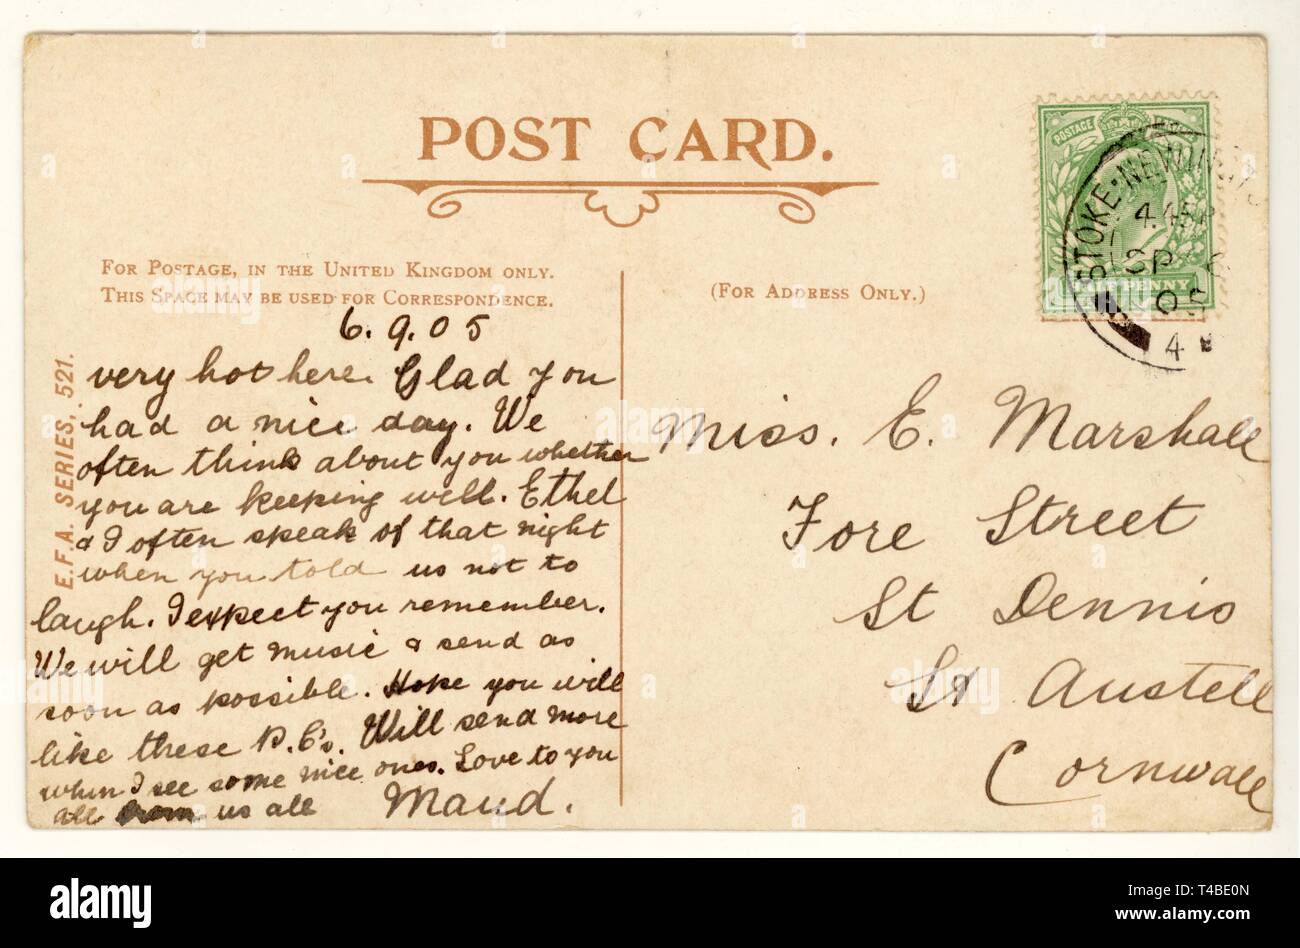 POST CARD.
FOR POSTAGE, IN THE UNITED KINGDOM ONLY.
THIS SPACE MAY BE USED FOR CORRESPONDENCE.
(FOR ADDRESS ONLY.)
E.F.A. SERIES, 521.
6.9.05
very hot here. Glad you
had a nice day. We
often think about you whether
you are keeping well. Ethel
& I often speak of that night
when you told us not to
laugh. I expect you remember.
We will get music & send as
soon as possible. Hope you will
like these P.C's. Will send more
when I see some nice ones. Love to you
all from us all Maud.
POSTAGE
STOKE·NEWINGTO
4.45P
SP 6
05
4
PENNY
Miss. E. Marshall
Fore Street
St Dennis
St Austell
Cornwall
alamy
Image ID: T4BE0N
www.alamy.com